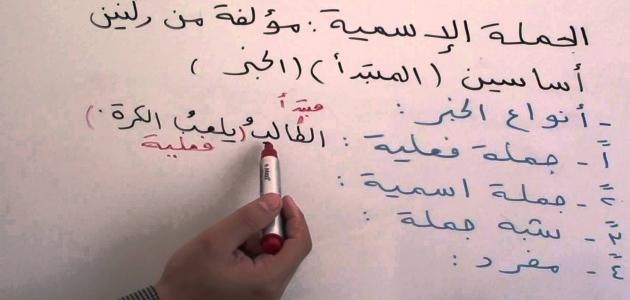 الجملة الإسمية : مؤلفة من ركنين
أساسين ( المبتدأ ) ( الخبر )
- أنواع الخبر :
١ - جملة فعلية : الطالبُ ( يلعبُ الكرة . )
مبتدأ
فعلية
٢ - جملة اسمية :
٣ - شبه جملة :
٤ - مفرد :